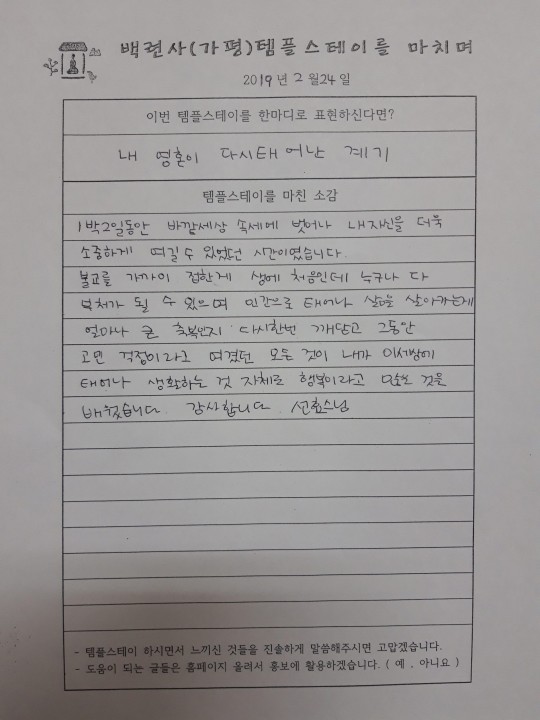 백련사(가평)템플스테이를 마치며
2019년 2월24일
이번 템플스테이를 한마디로 표현하신다면?
내 영혼이 다시태어난 계기
템플스테이를 마친 소감
1박2일동안 바깥세상 속세에 벗어나 내자신을 더욱
소중하게 여길수 있었던 시간이였습니다.
불교를 가까이 접한게 생에 처음인데 누구나 다
부처가 될 수 있으며 인간으로 태어나 삶을 살아가는게
얼마나 큰 축복인지 다시한번 깨닫고 그동안
고민 걱정이라고 여겼던 모든 것이 내가 이세상에
태어나 생활하는 것 자체로 행복이라고 많은 것을
배웠습니다. 감사합니다. 선효스님
- 템플스테이 하시면서 느끼신 것들을 진솔하게 말씀해주시면 고맙겠습니다.
- 도움이 되는 글들은 홈페이지 올려서 홍보에 활용하겠습니다. ( 예 , 아니요 )